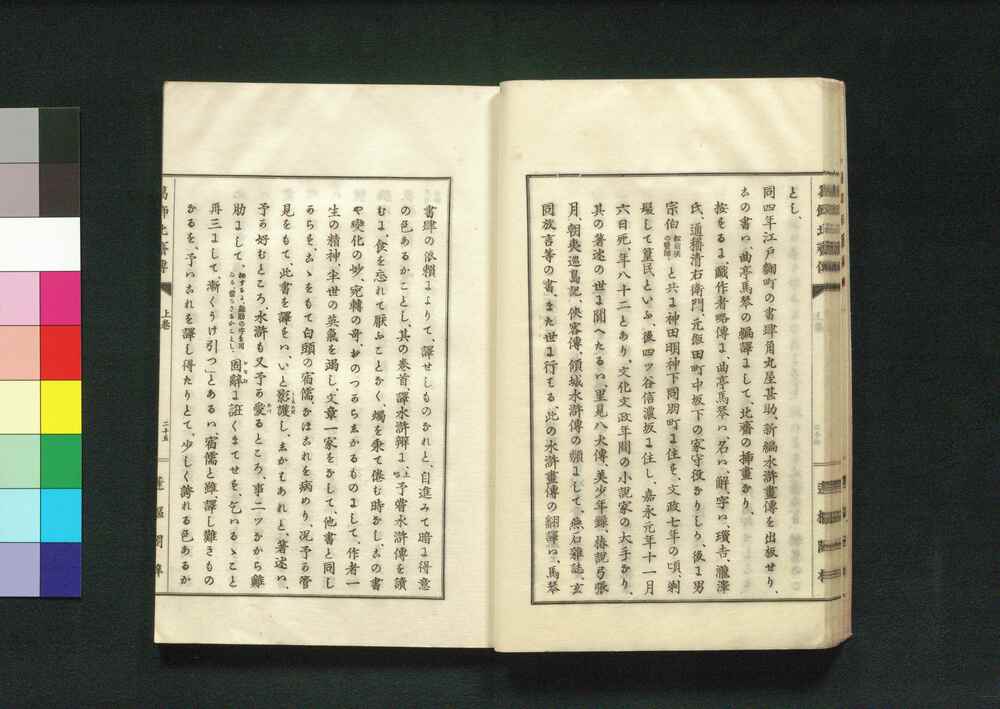 とし、
同四年江戸麹町の書肆角丸屋甚助、新編水滸畫傳を出板せり、
この書ハ、曲亭馬琴の編譯よして、北齋の挿畫なり、
按をるよ、戯作者略傳よ、曲亭馬琴ハ、名ハ、解字ハ、瑣吉、瀧澤
氏、通稱清右衛門、元飯田町中坂下の家守役なりしり、後よ男
宗伯松前侯の醫師、と共よ神田明神下同朋町よ住を、文政七年の頃、剃
髪して篁民といふ、後四ツ谷信濃坂よ住し、嘉永元年十一月
六日死、年八十二とあり、文化文政年間の小説家の大手なり、
其の著述の世よ聞へたるハ、里見八犬傳、美少年録、椿説弓張
月、朝夷巡島記、侠客傳、傾城水滸傳の類よして、燕石雜誌、玄
同放言等の書、また世よ行もる、此の水滸畫傳の飜譯ハ、馬琴
書肆の依頼よよりて、譯せしものなれと、自進みて暗よ得意
の色あるかことし、其の巻首、譯水滸辯よ、予嘗水滸傳を讀
むよ、食を忘れて厭ふことなく、燭を乗て倦む時なし、この書
や變化の妙、宛轉の奇、おのつから去かるものよして、作者一
生の精神、半世の英氣を竭し、文章一家をなして、他書と同し
からを、こゝをもて白頭の宿儒、なほこれを病めり、况予か管
見をもて、此書を譯をハ、いと影護し、去かもあれと、著述ハ、
予か好むところ、水滸も又予か愛るところ、事二ツなから雞
肋よして、固辭よ誑くまてせを、乞ハるゝこと
再三よして、漸くうけ引つ」とあるハ、宿儒と雖、譯し難きもの
なるを、予ハこれを譯し得たりとて、少しく誇れる色あるか
葛飾北齋傳
上巻
二十五